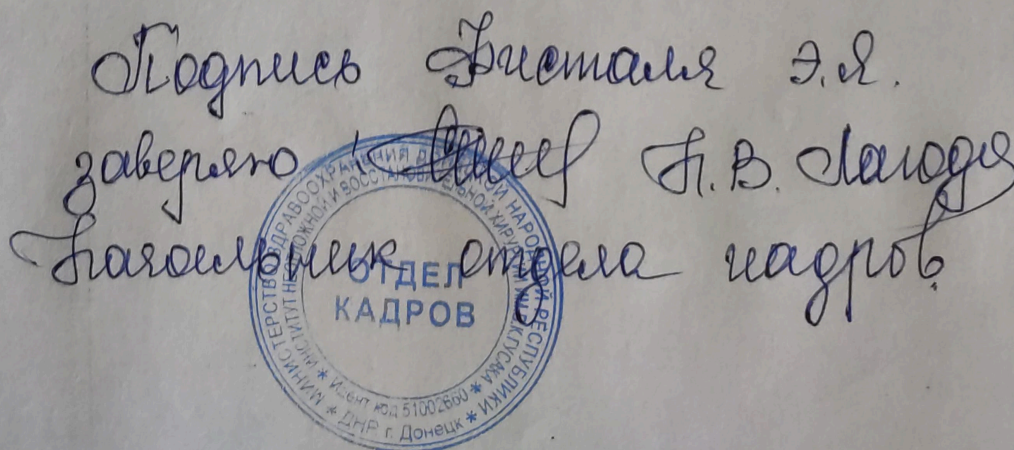 Подпись Фисталя Э.Я.
заверяю Н.В. Лагода
Начальник отдела кадров
МИНИСТЕРСТВО ЗДРАВООХРАНЕНИЯ ДОНЕЦКОЙ НАРОДНОЙ РЕСПУБЛИКИ
ИНСТИТУТ НЕОТЛОЖНОЙ И ВОССТАНОВИТЕЛЬНОЙ ХИРУРГИИ ИМ. В.К.ГУСАКА
ОТДЕЛ
КАДРОВ
Идент код 51002660
ДНР г. Донецк